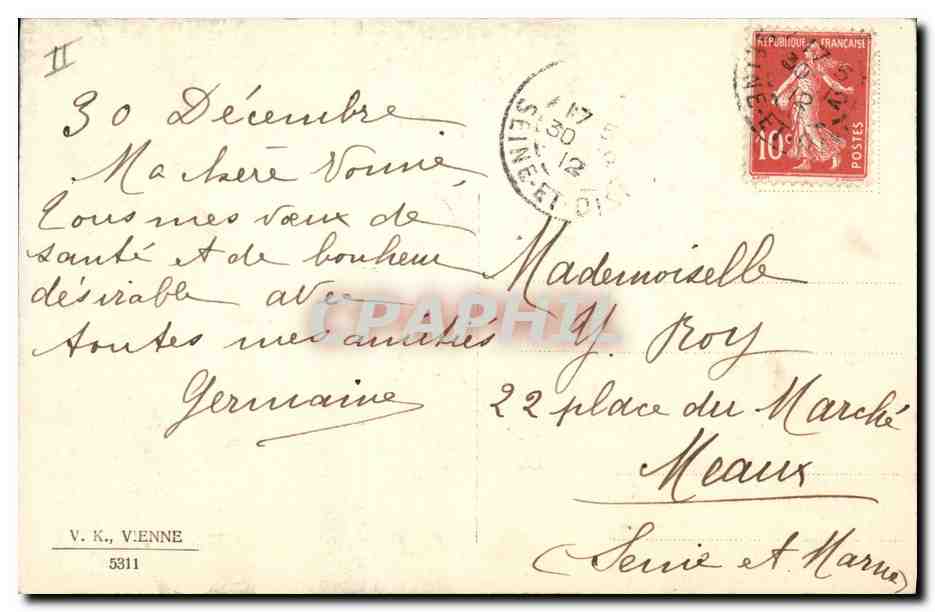 II
30 Décembre
Ma chère Yvonne,
Tous mes vœux de
santé et de bonheur
désirable avec
toutes mes amitiés
Germaine
V. K., VIENNE
5311
17
30
12
SEINE-ET-OISE
REPUBLIQUE FRANÇAISE
10c
POSTES
Mademoiselle
Y. Roy
22 place du Marché
Meaux
(Seine et Marne)
CPAPHIL